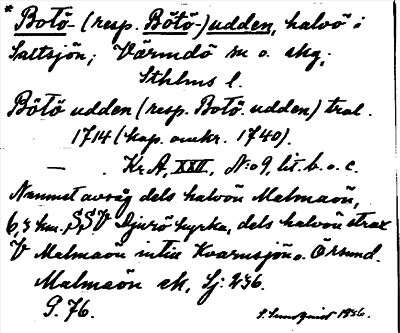 * Botö- (resp. Bötö-) udden, halvö i
Saltsjön; Värmdö sn o. skg,
Sthlms l.
Bötö udden (resp. Botö. udden) tral.
1714 (kop. omkr. 1740).
— . Kr A, XXII, N:o 9, lit. b. o. c.
Namnet avsåg dels halvön Malmaön,
6,5 km. SSV Djurö kyrka, dels halvön strax
V Malmaön intill Kvarnsjön o. Örsund.
Malmaön ek, Sj: 236.
P. 76.
1936.